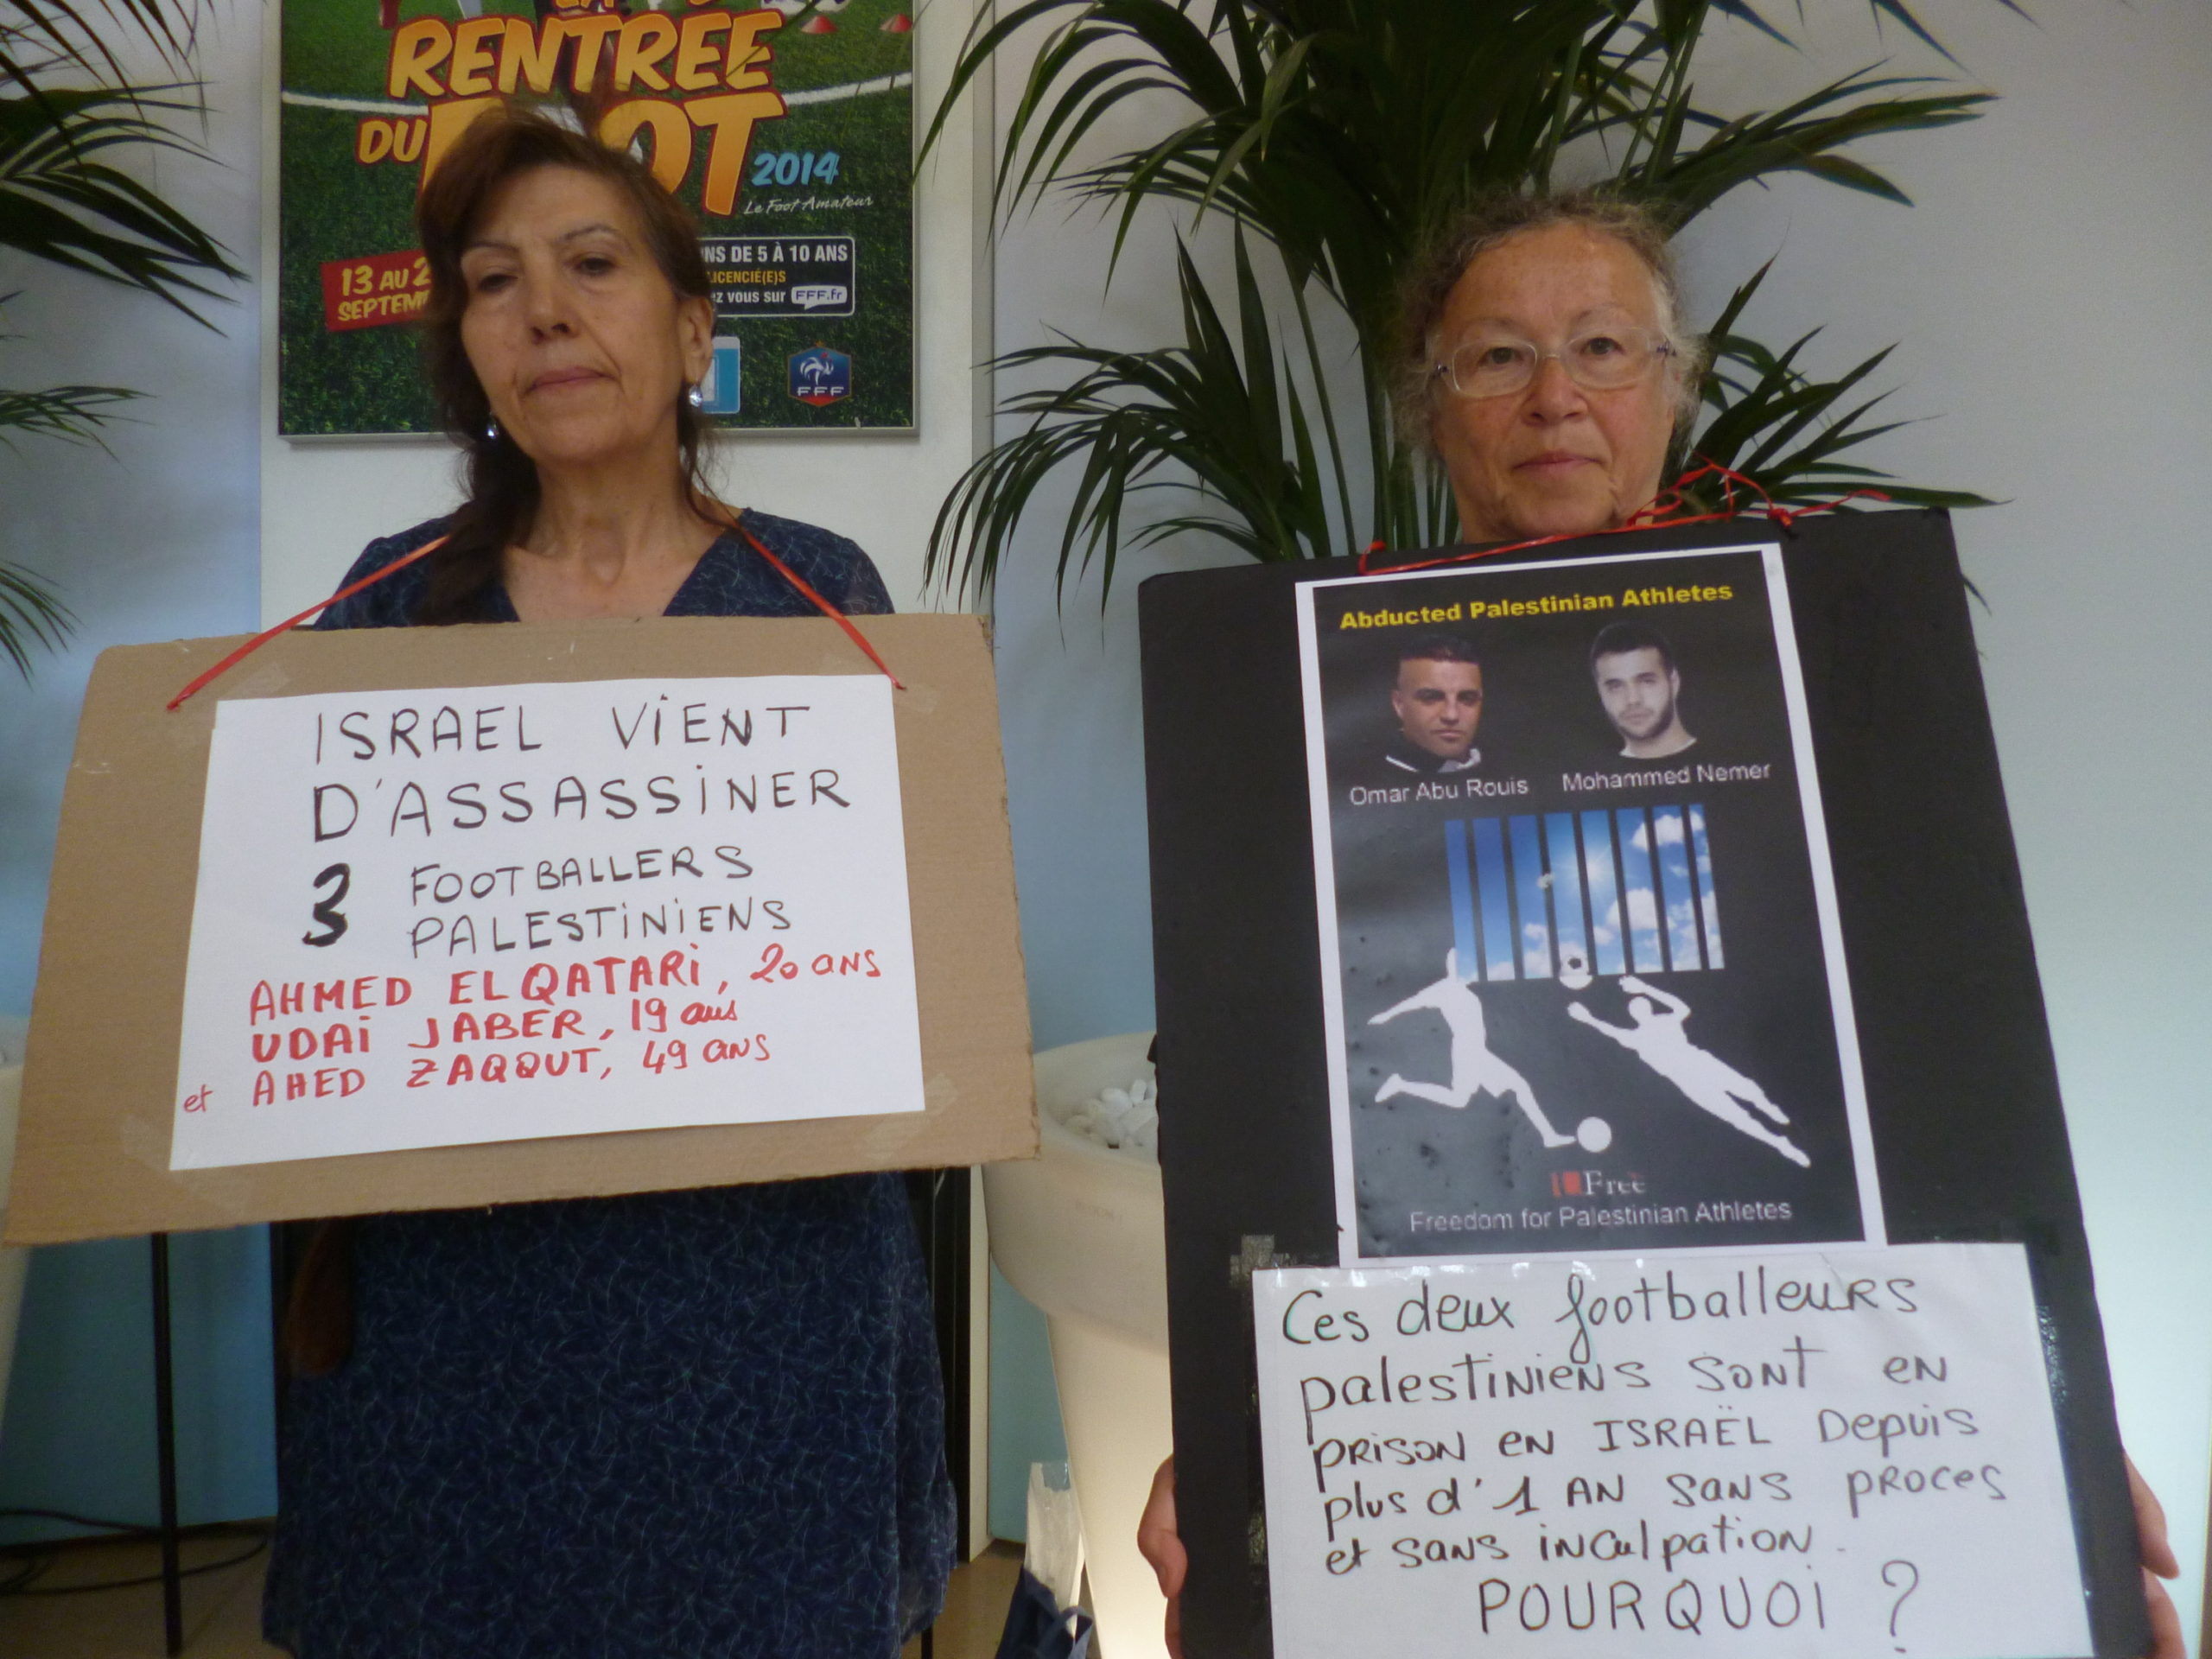 RENTREE
DU FOOT
2014
Le Foot Amateur
13 AU
SEPTEM
NS DE 5 À 10 ANS
LICENCIÉ(E)S
z vous sur FFF.fr
FFF
ISRAEL VIENT
D'ASSASSINER
3 FOOTBALLERS
PALESTINIENS
AHMED EL QATARI, 20 ANS
UDAI JABER, 19 ans
et AHED ZAQQUT, 49 ANS
Abducted Palestinian Athletes
Omar Abu Rouis Mohammed Nemer
Free
Freedom for Palestinian Athletes
Ces deux footballeurs
palestiniens sont en
prison en ISRAËL Depuis
plus d'1 AN sans proces
et sans inculpation.
POURQUOI ?